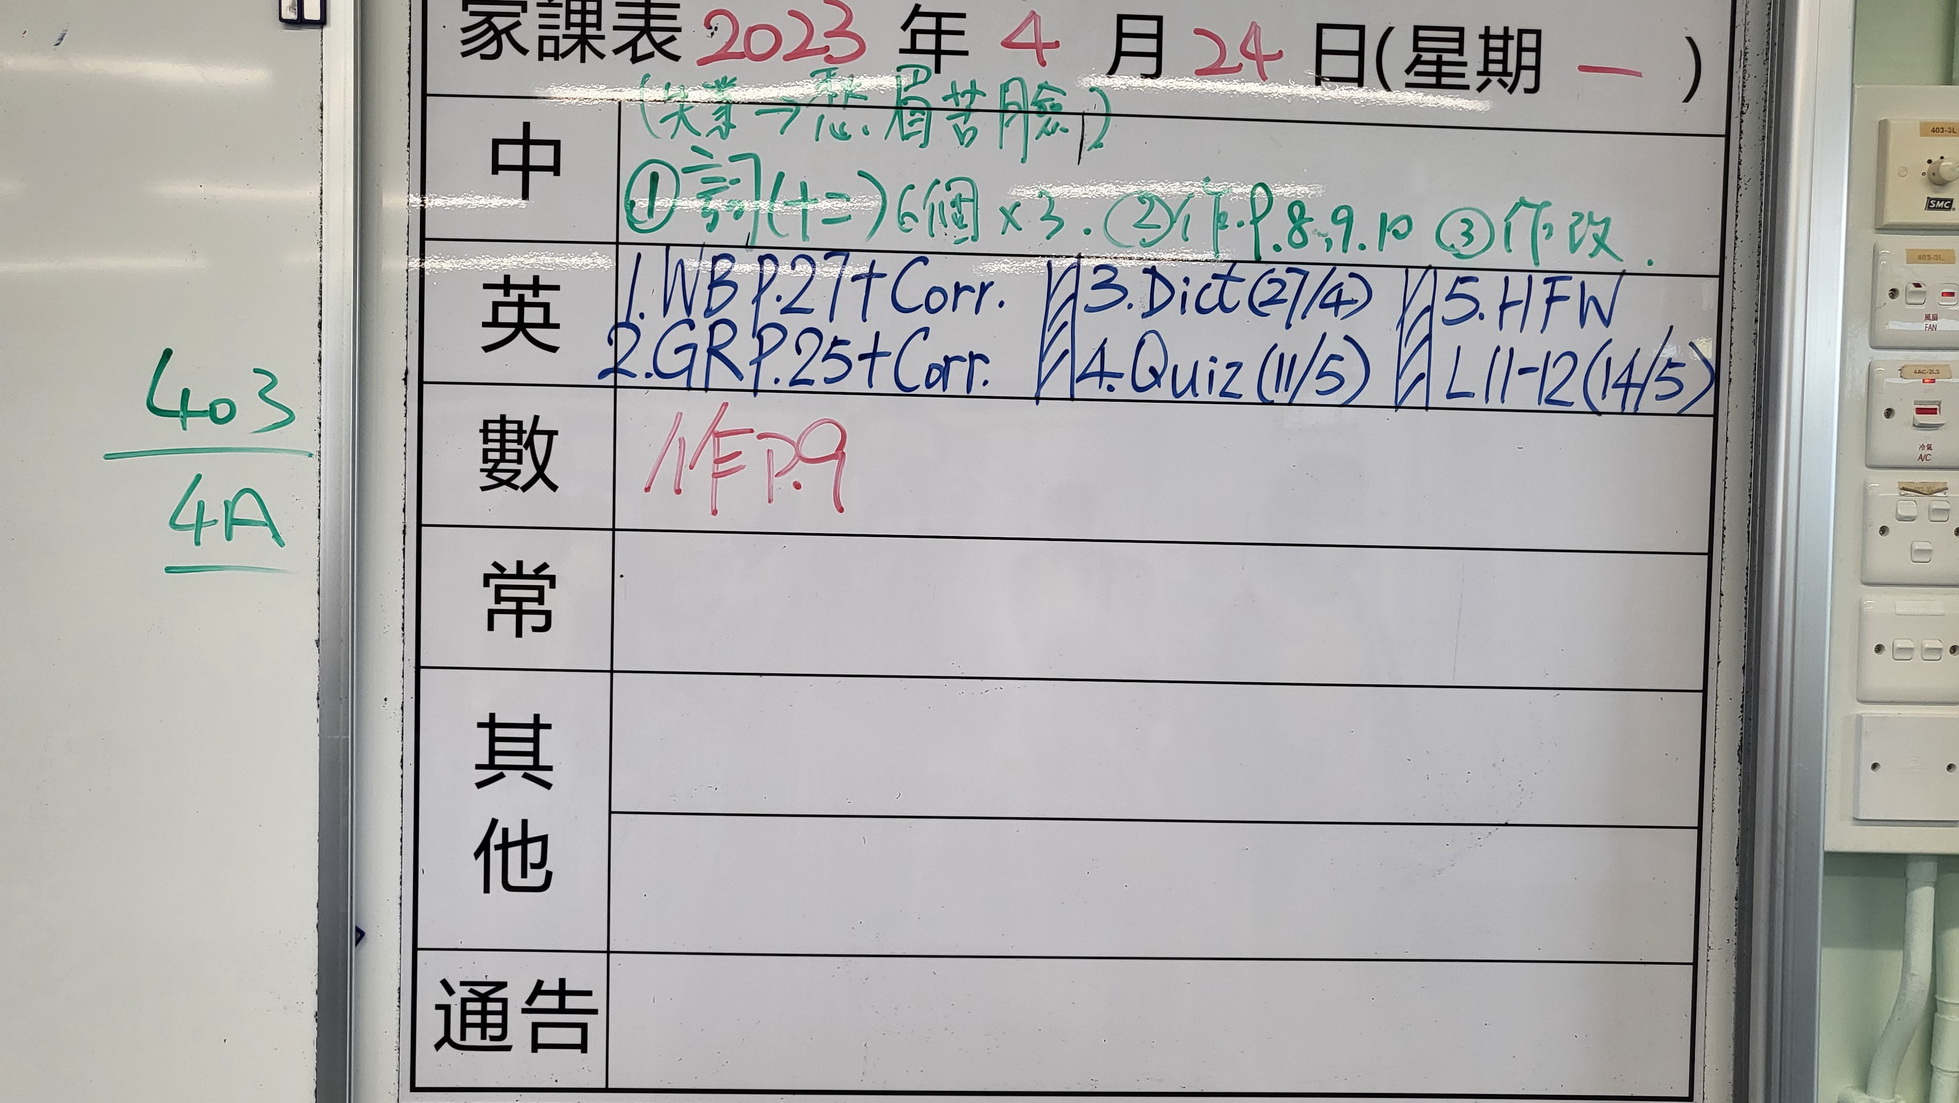 家課表 2023 年 4 月 24 日(星期 一 )
中
(失業→愁眉苦臉)
①詞(十二)6個×3. ②作.P.8,9.10 ③作改.
英
1.WB P.27+Corr. 3.Dict(27/4) 5.HFW
2.GR P.25+Corr. 4.Quiz(11/5) L11-12(14/5)
數
作P.9
常
其
他
通告
403
4A
403-3L
SMC
403-3L
風扇
FAN
冷氣
A/C